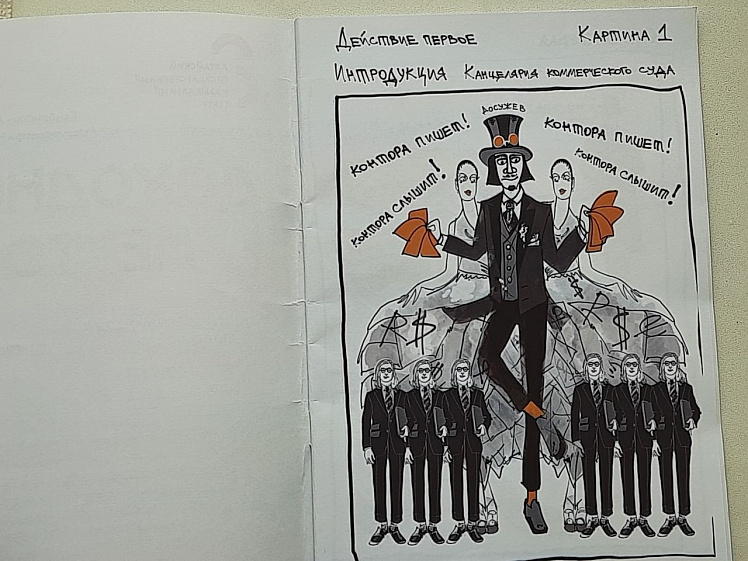 Действие первое Картина 1
Интродукция Канцелярия коммерческого суда
Досужев
Контора пишет! Контора пишет!
Контора слышит! Контора слышит!
R$ R$
$